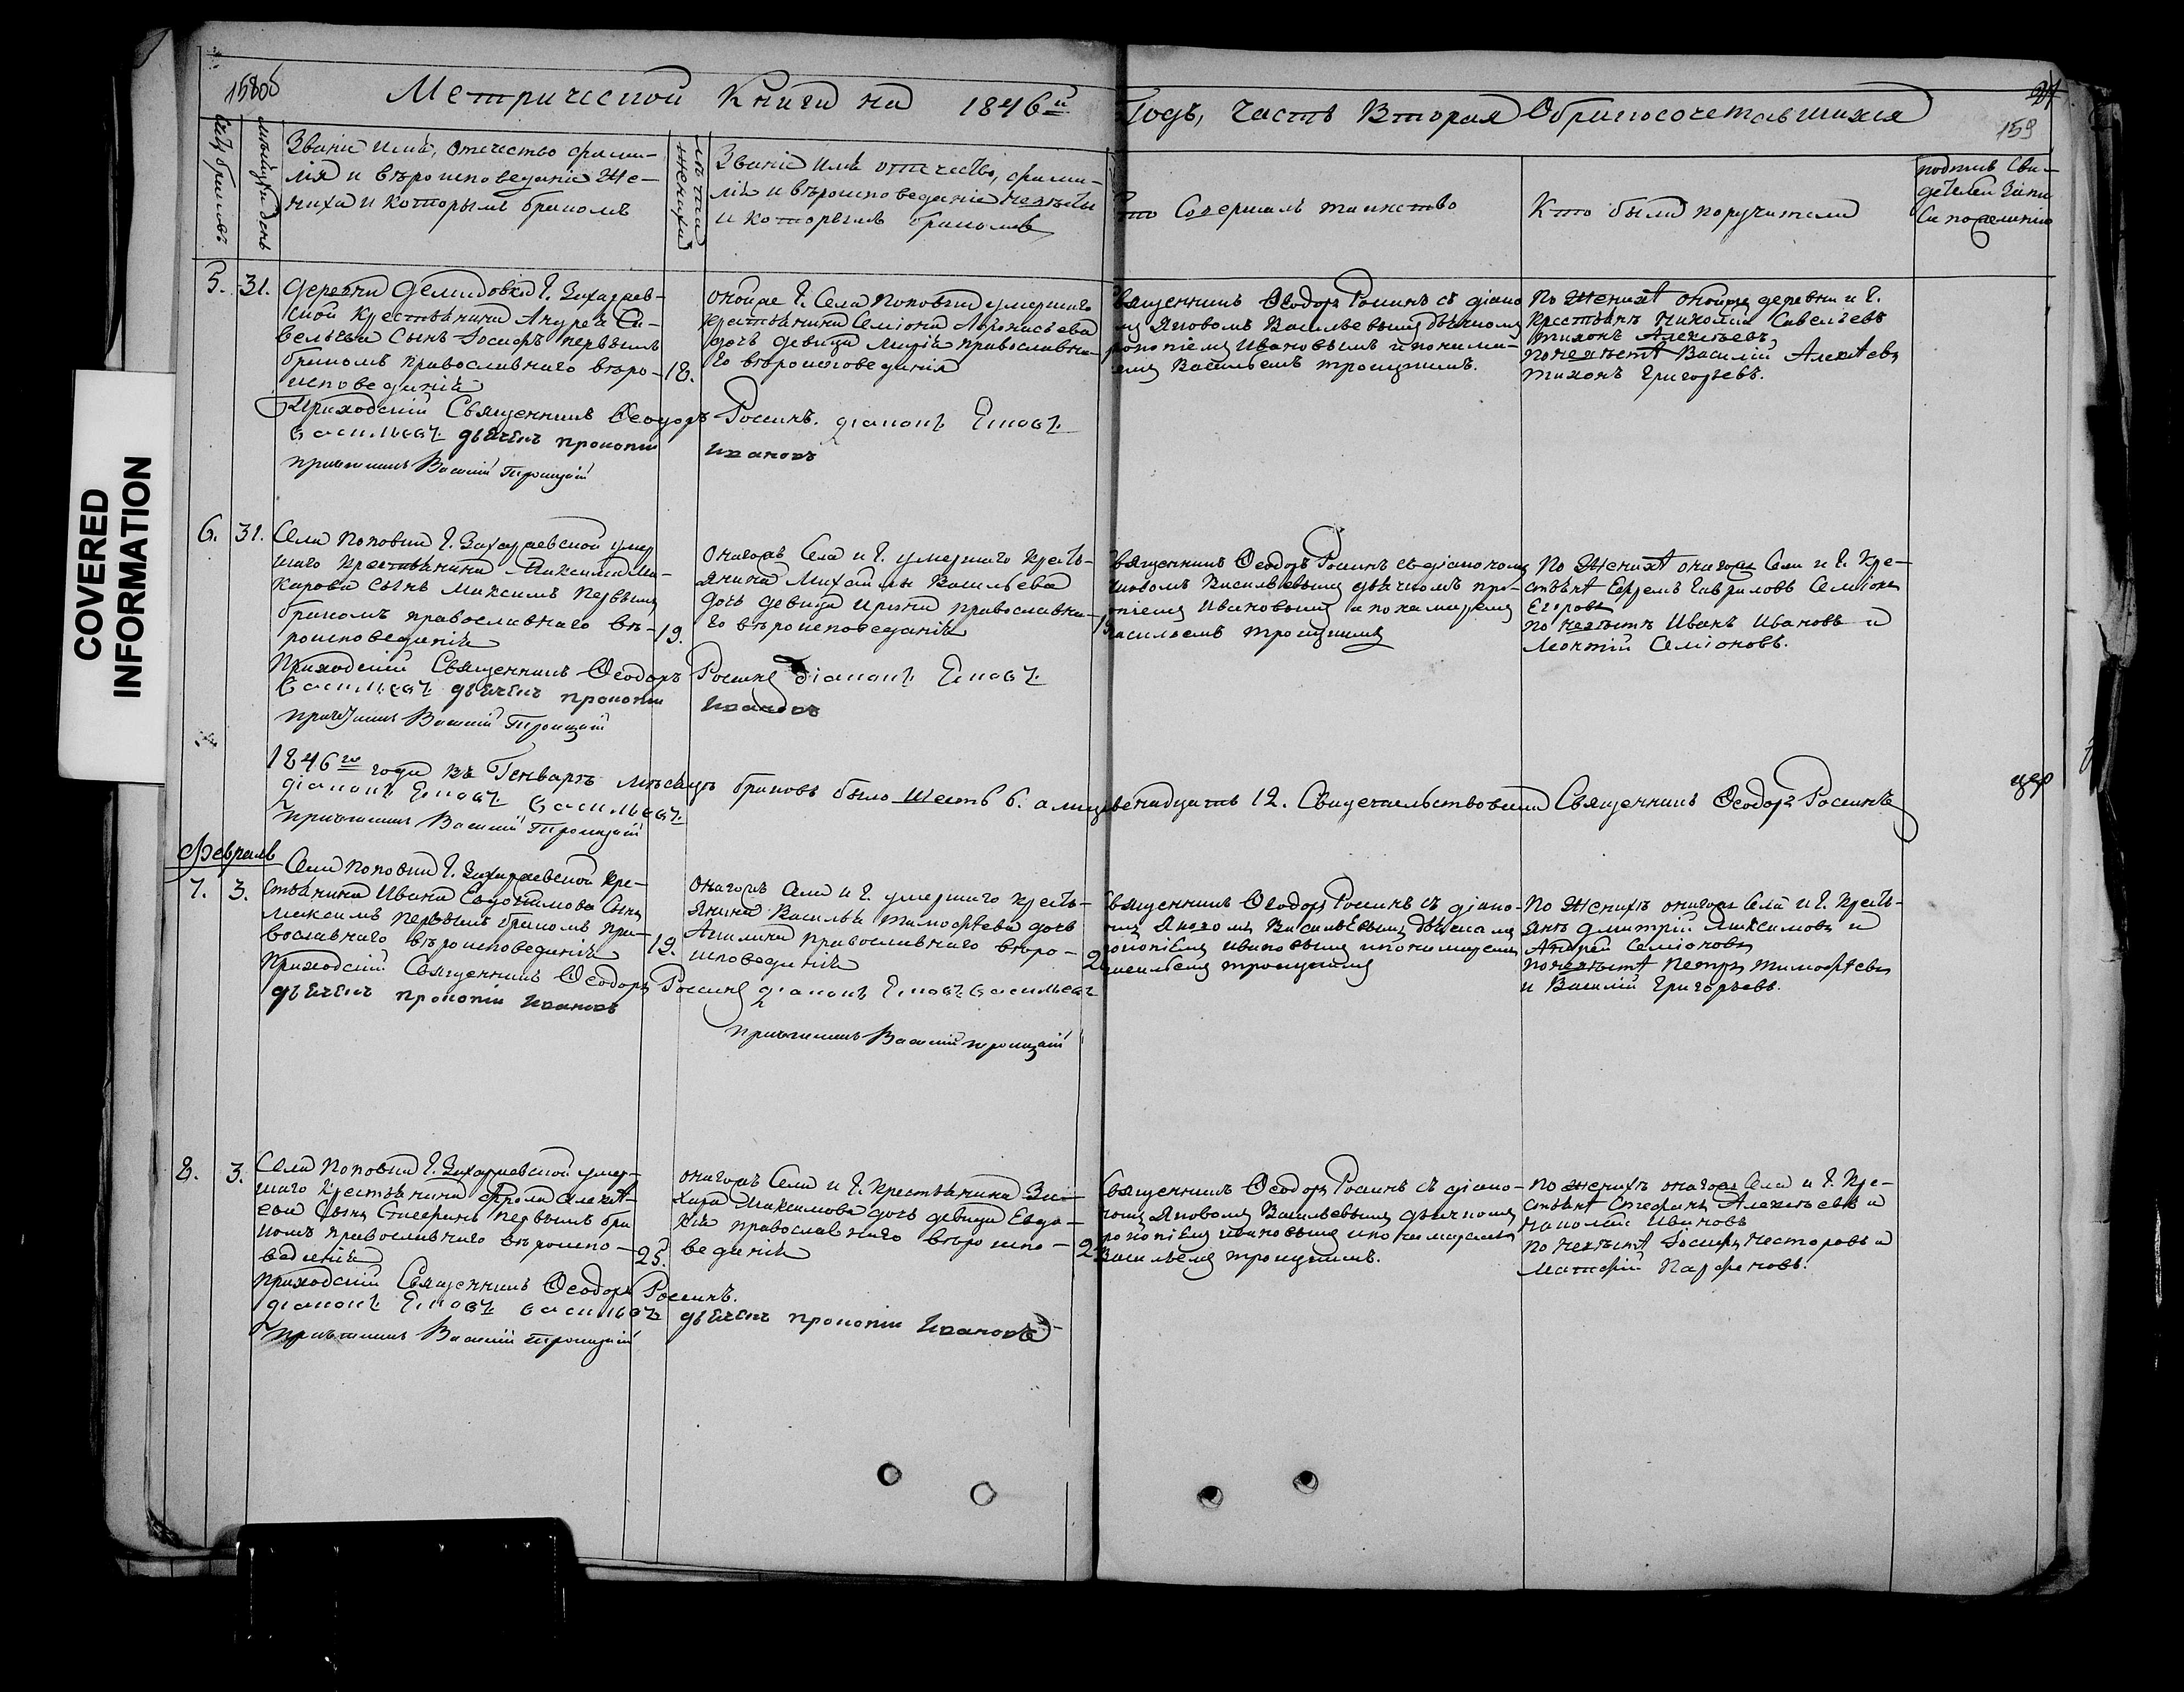 COVERED
INFORMATION
158об
Метрической Книги на 1846й Годъ, Часть Вторая О бракосочетавшихся
159
Счетъ браковъ
мѣсяцъ и день
Званіе имя, отечество фами-
лія и вѣроисповеданіе Же-
ниха и которымъ бракомъ
лѣта
жениха
Званіе имя отечество, фами-
лія и вѣроисповеданіе невѣсты
и которымъ бракомъ
Кто Совершалъ таинство
Кто были поручители
подпись Сви-
детелей запи
си по желанию
5. 31.
деревни Демидовки Г. Захаржев-
ской крестьянина Андрея Са-
вельева Сынъ Іосифъ первымъ
бракомъ православнаго вѣро-
исповеданія
18.
оной же Г. Села Поповки умершаго
крестьянина Семіона Афонасьева
дочь девица Марія православна-
го вѣроисповеданія
Священникъ Ѳеодоръ Росинъ съ діако
мъ Яковомъ Васильевымъ дьячкомъ
рокопіемъ Ивановымъ и понама-
емъ Васильемъ троицкимъ.
По Женихѣ оной же деревни и Г.
Крестьянъ Николай Савельевъ
тихонъ Алексѣевъ,
по невѣстѣ Василій Алексѣевъ
тихонъ Григорьевъ.
Приходскій Священникъ Ѳеодоръ Росинъ. діаконъ Яковъ
Васильевъ дьячекъ прокопій Ивановъ
причетникъ Василій Троицкій
6. 31.
Села Поповки Г. Захаржевской умер
шаго крестьянина Максима Ма-
карова Сынъ Максимъ первымъ
бракомъ православнаго вѣ-
роисповеданія
19.
Онагожъ Села и Г. умершаго Кресть-
янина Михайлы Васильева
дочь девица Ирина православна-
го вѣроисповеданія
Священникъ Ѳеодоръ Росинъ съ діакономъ
Яковомъ Васильевымъ дьячкомъ про-
опіемъ Ивановымъ и понамаремъ
Васильемъ троицкимъ
По Женихѣ онагожъ Села и Г. Кре-
стьянѣ Ефремъ Гавриловъ Семіонъ
Егоровъ
по невѣстѣ Иванъ Ивановъ и
Леонтій Семіоновъ.
Приходскій Священникъ Ѳеодоръ Росинъ діаконъ Яковъ
Васильевъ дьячекъ прокопій Ивановъ
причетникъ Василій Троицкій
1846го года въ Генварѣ месяцѣ браковъ было Шесть 6. а лицъ двенадцать 12. Свидетельствовали Священникъ Ѳеодоръ Росинъ
діаконъ Яковъ Васильевъ
Причетникъ Василій Троицкій
Февраль
7. 3.
Села Поповки Г. Захаржевской Кре-
стьянина Ивана Евдокимова Сынъ
Максимъ первымъ бракомъ пра-
вославнаго вѣроисповеданія
19.
Онагожъ Села и Г. умершаго Кресть-
янина Василья Тимофѣева дочь
Акилина православнаго вѣро-
исповеданія
Священникъ Ѳеодоръ Росинъ съ діако-
омъ Яковомъ Васильевымъ дьячкомъ
рокопіемъ Ивановымъ и понамаремъ
Васильемъ троицкимъ
По Женихѣ онагожъ Села и Г. Кресть-
янъ Дмитрій Максимовъ и
Андрей Семіоновъ
по невѣстѣ Петръ Тимофѣевъ
и Василій Григорьевъ.
Приходскій Священникъ Ѳеодоръ Росинъ діаконъ Яковъ Васильевъ
дьячекъ прокопій Ивановъ
причетникъ Василій троицкій
8. 3.
Села Поповки Г. Захаржевской умер-
шаго крестьянина Фрола Алексѣ-
ева Сынъ Стефанъ первымъ бра
комъ православнаго вѣроиспо-
веданія
25.
онагожъ Села и Г. Крестьянина За-
хара Максимова дочь девица Евдо-
кія православнаго вѣроиспо-
веданія
Священникъ Ѳеодоръ Росинъ съ діако-
номъ Яковомъ Васильевымъ дьячкомъ
рокопіемъ Ивановымъ и понамаремъ
Васильемъ троицкимъ.
По женихѣ онагожъ Села и Г. Кре-
стьянѣ Стефанъ Алексѣевъ и
Николай Ивановъ
по невѣстѣ Іосифъ Несторовъ и
Матфій Парфеновъ.
Приходскій Священникъ Ѳеодоръ Росинъ.
діаконъ Яковъ Васильевъ дьячекъ прокопій Ивановъ
причетникъ Василій троицкій